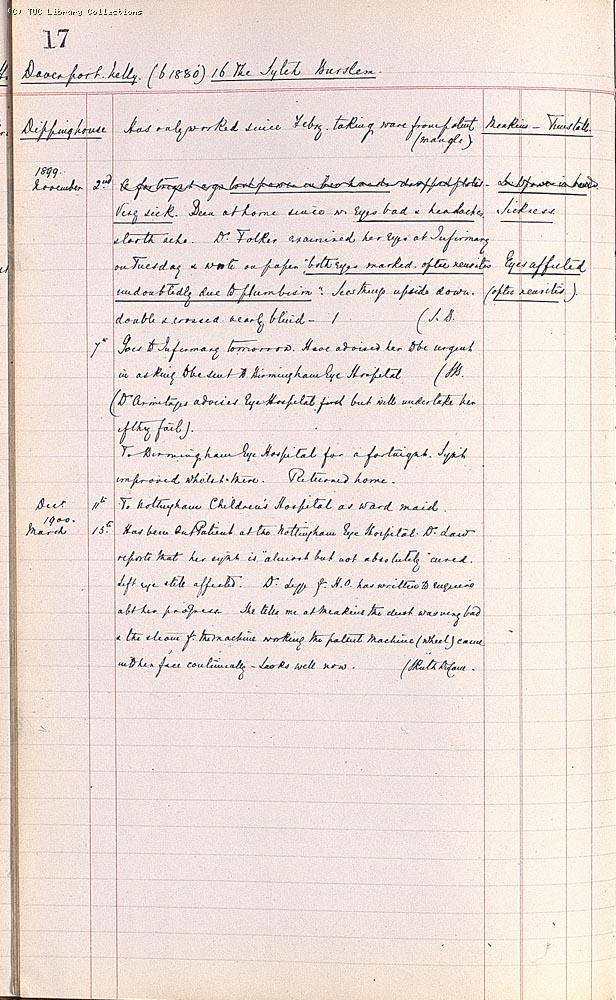 (C) TUC Library Collections
17
Davenport. Nelly. (b 1880) 16 The Sytch Burslem.
Dipping house Has only worked since Feby. taking ware from patent Meakins – Tunstall.
(mangle)
1899.
November 2nd A fortnight ago lost power in her hands dropped plates - Lost power in hands
Very sick. Been at home since w. Eyes bad & headaches Sickness
& tooth ache. Dr Folker examined her Eyes at Infirmary
on Tuesday & wrote on paper "both eyes marked. optic neuritis Eyes affected
undoubtedly due to plumbism". Sees things upside down. (optic neuritis).
double & crossed nearly blind –
7th Goes to Infirmary tomorrow. Have advised her to be urgent
in asking to be sent to Birmingham Eye Hospital
(Dr Armitage advises Eye Hospital first but will undertake her
if they fail).
To Birmingham Eye Hospital for a fortnight. Sight
improved whilst there. Returned home.
Decr 11th To Nottingham Children's Hospital as ward maid.
1900.
March 15th Has been Out Patient at the Nottingham Eye Hospital. Dr Law
reports that her sight is "almost but not absolutely" cured.
Left eye still affected. Dr Legge of H.O. has written to enquire
abt her progress. She tells me at Meakins the dust was very bad
& the steam of the machine working the patent Machine (wheel) came
into her face continually – Looks well now.